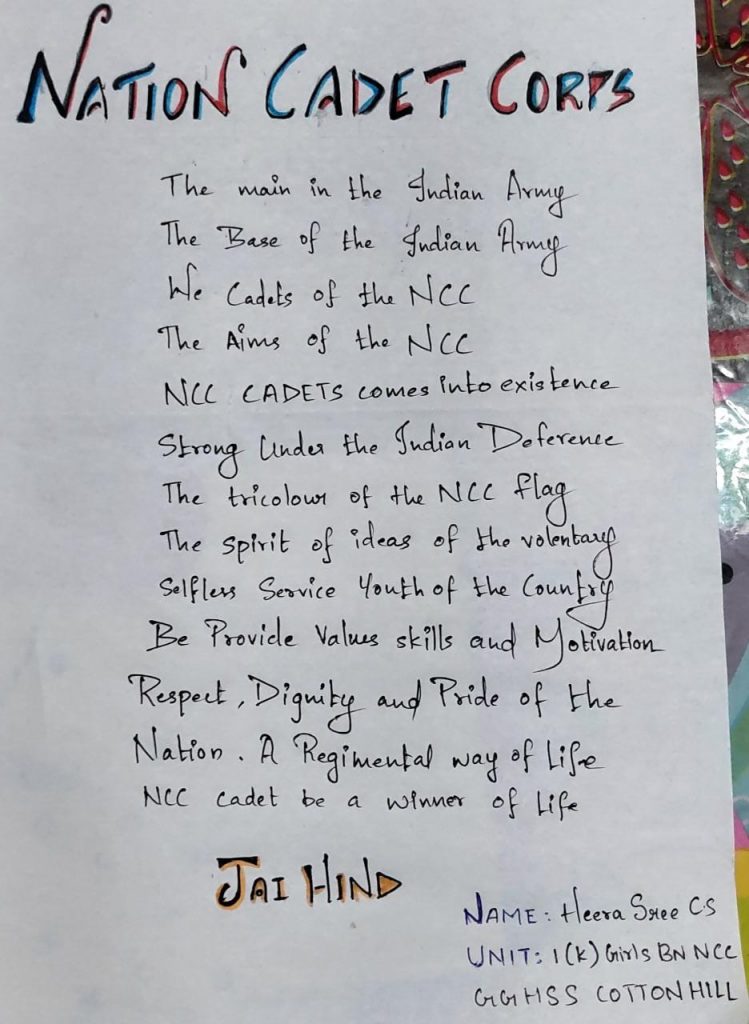 NATION CADET CORPS
The main in the Indian Army
The Base of the Indian Army
We Cadets of the NCC
The Aims of the NCC
NCC CADETS comes into existence
Strong Under the Indian Deference
The tricolour of the NCC flag
The spirit of ideas of the volentary
Selfless Service Youth of the Country
Be Provide Values skills and Motivation
Respect, Dignity and Pride of the
Nation. A Regimental way of Life
NCC cadet be a winner of Life
JAI HIND
NAME: Heera Sree C.S
UNIT: 1(K) Girls BN NCC
GGHSS COTTONHILL